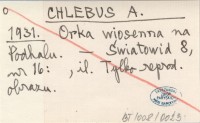 o
CHLEBUS A.
1931. Orka wiosenna na
Podhalu. — Światowid 8,
nr 16: , il. Tylko reprod.
obrazu.
BT/002/0023